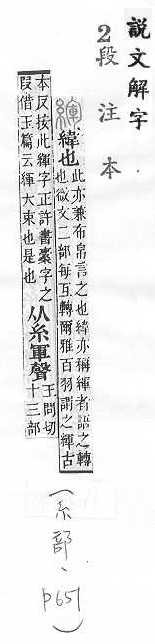 說文解字
2段注本
緷 緯也
此亦兼布帛言之也緯亦稱緷者語之轉
也微文二部每互轉爾雅百羽謂之緷古
本反按此緷字正許書㯻字之
叚借玉篇云緷大束也是也
从糸軍聲
王問切
十三部
(糸部、p651)